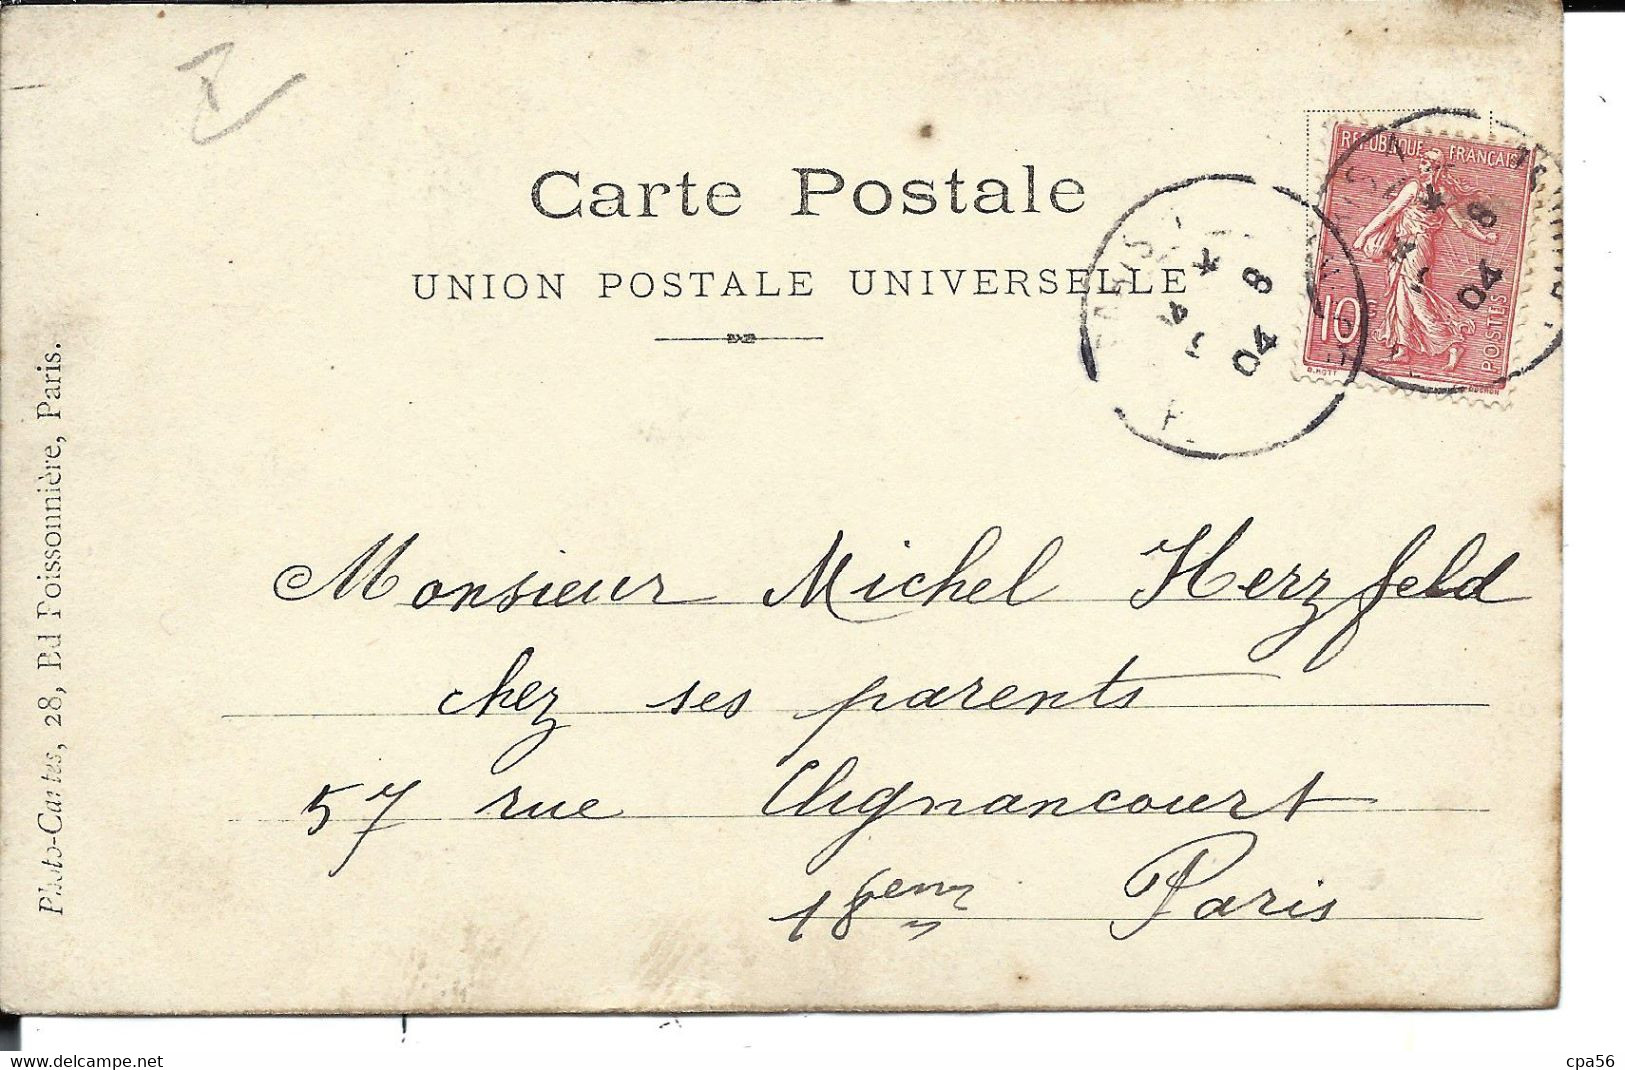 Carte Postale
UNION POSTALE UNIVERSELLE
REPUBLIQUE FRANÇAISE
10c
POSTES
PARIS
* 8
04
* 8
04
Photo-Cartes, 28, Bd Poissonnière, Paris.
Monsieur Michel Herzfeld
chez ses parents
57 rue Clignancourt
18em Paris
www.delcampe.net
cpa56